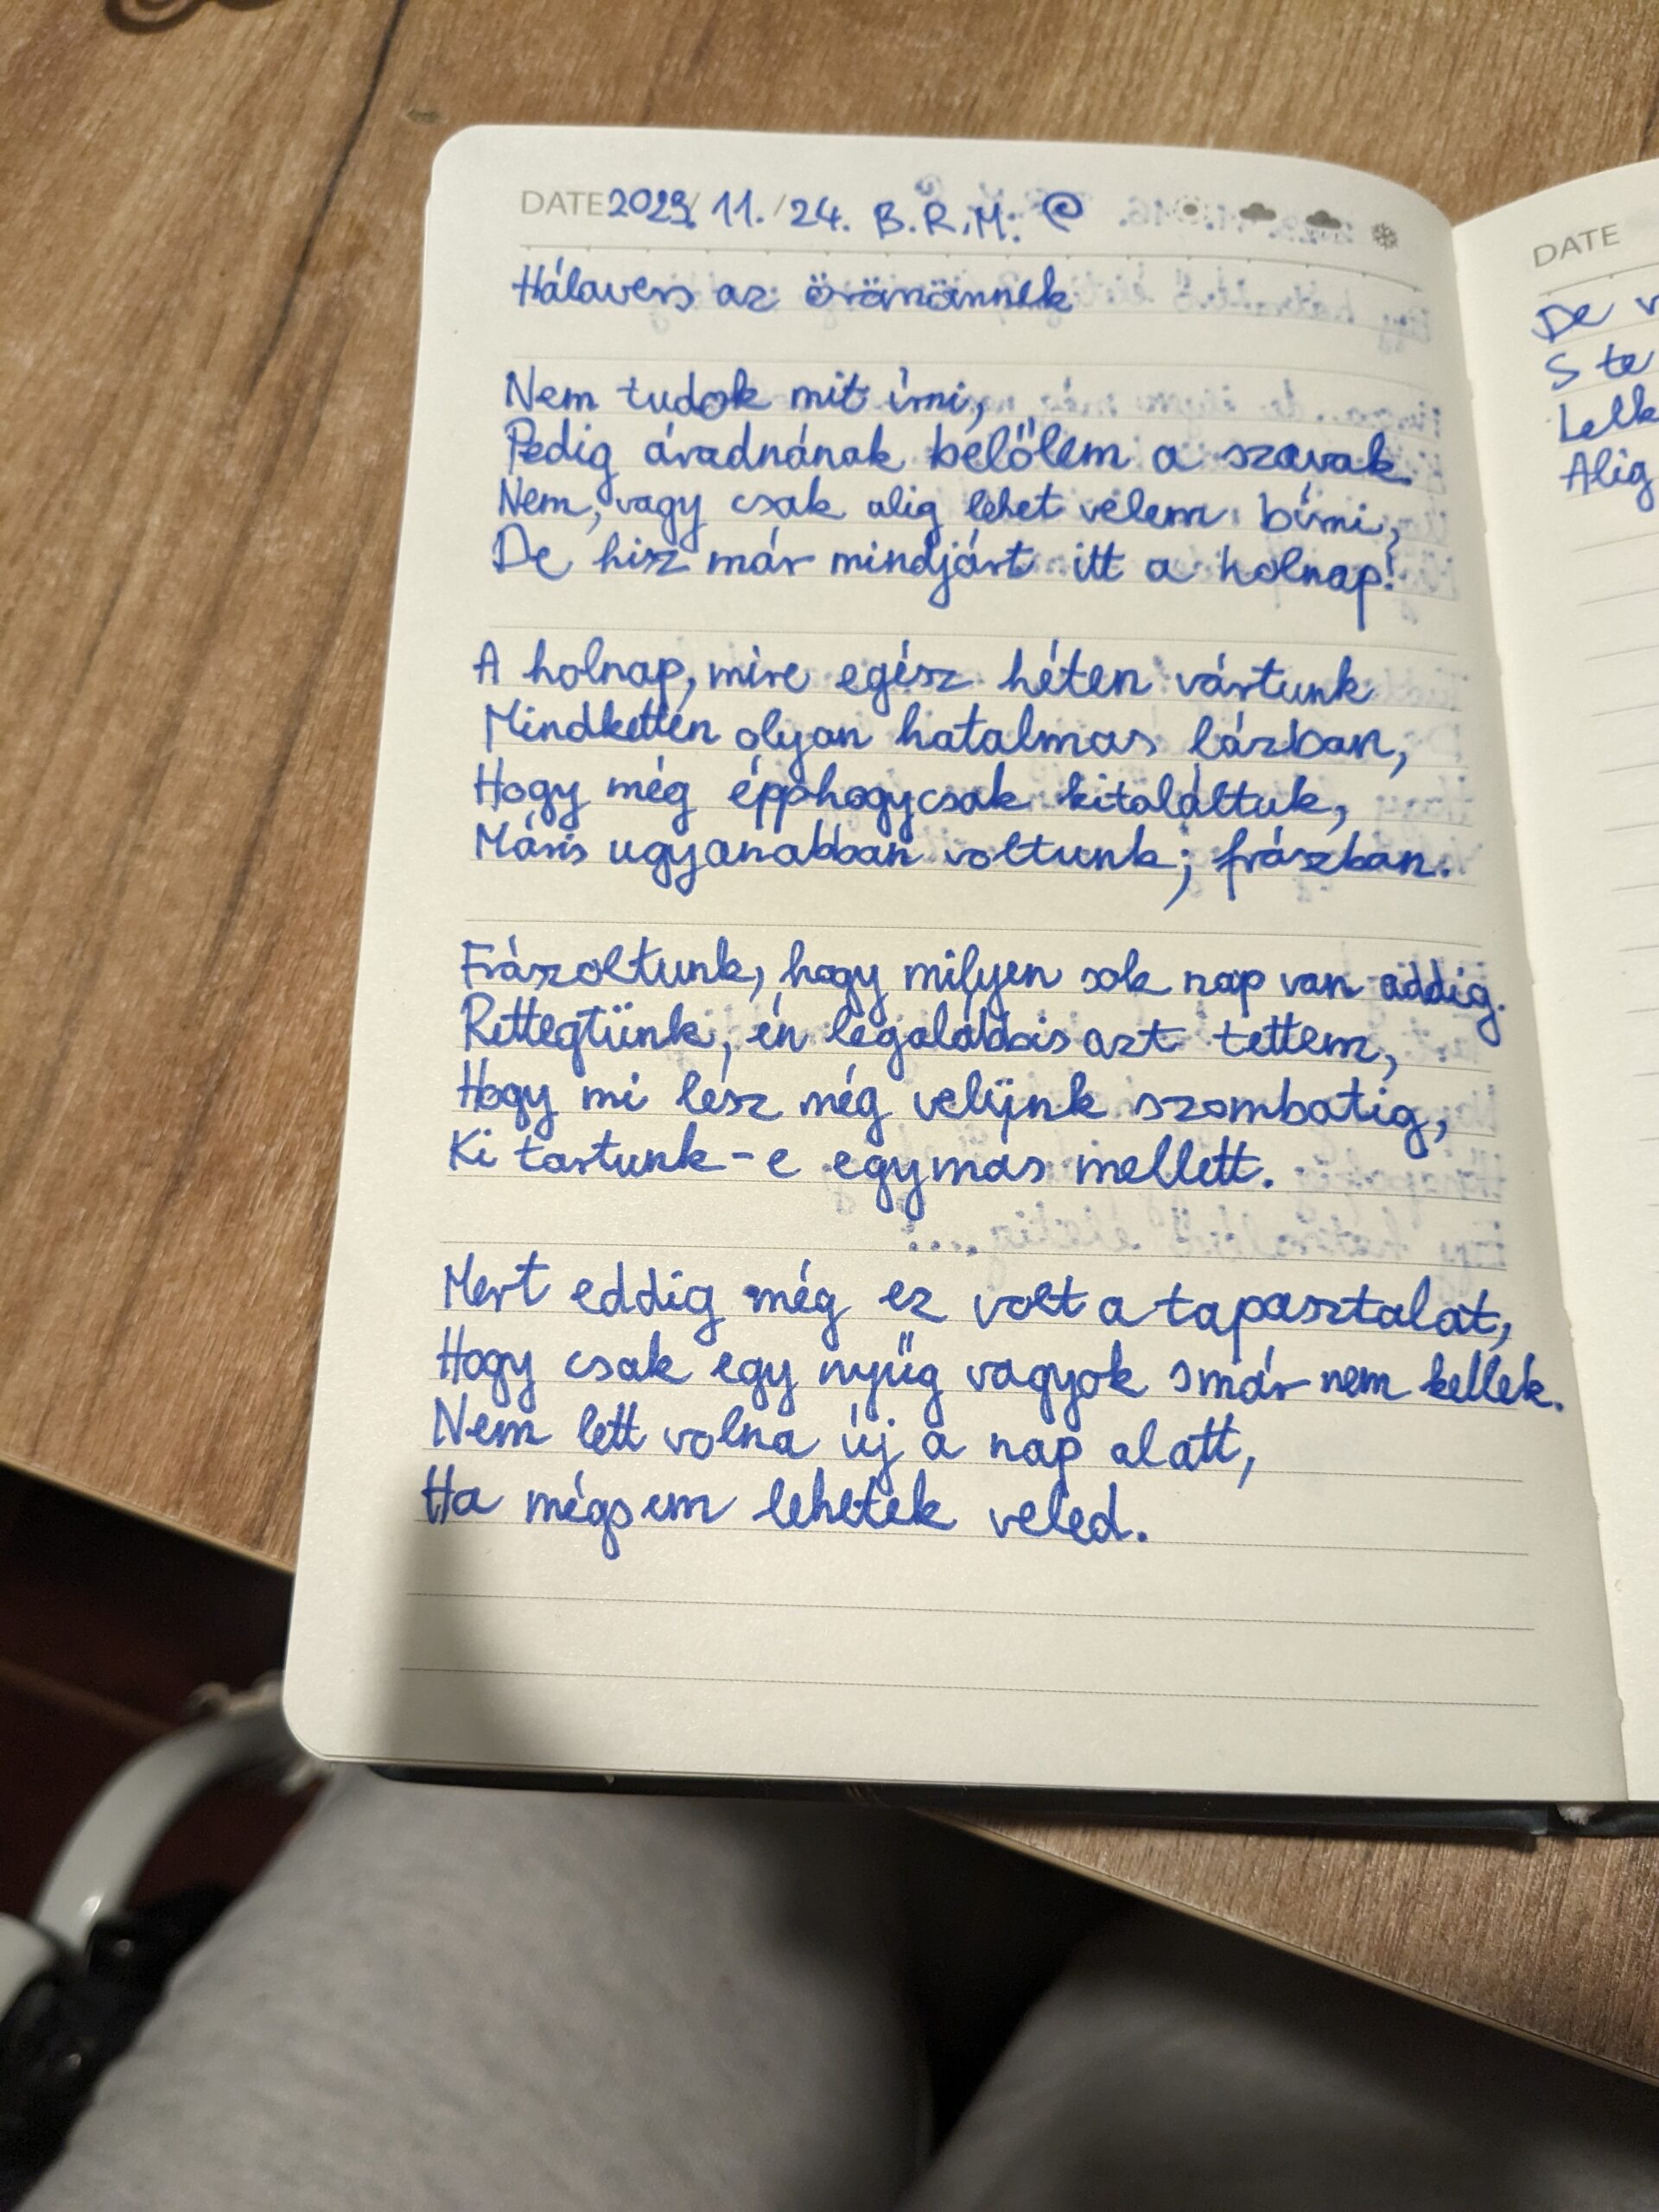 DATE 2023/ 11. /24. B.R.M.
Hálavers az örömömnek
Nem tudok mit írni,
Pedig áradnának belőlem a szavak.
Nem, vagy csak alig lehet velem bírni,
De hisz már mindjárt itt a holnap!
A holnap, mire egész héten vártunk
Mindketten olyan hatalmas lázban,
Hogy még épphogycsak kitaláltuk,
Máris ugyanabban voltunk; frászban.
Frászoltunk, hogy milyen sok nap van addig.
Rettegtünk, én legalábbis azt tettem,
Hogy mi lesz még velünk szombatig,
Ki tartunk-e egymas mellett.
Mert eddig még ez volt a tapasztalat,
Hogy csak egy nyűg vagyok s már nem kellek.
Nem lett volna új a nap alatt,
Ha mégsem lehetek veled.
DATE
De v
S te
Lelk
Alig